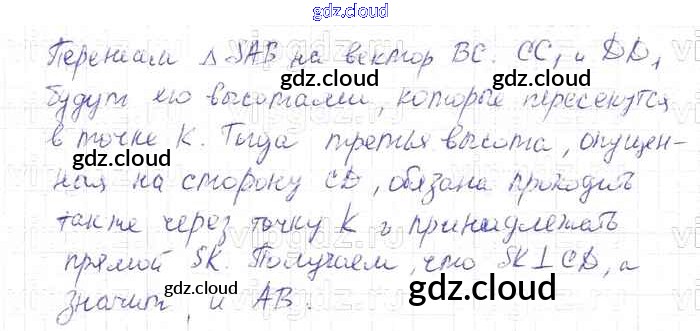 gdz.cloud
Перенесём Δ SAB на вектор BC. CC₁ и DD₁
gdz.cloud gdz.cloud
будут его высотами, которые пересекутся
в точке K. Тогда третья высота, опущен-
gdz.cloud
ная на сторону CD, обязана проходить
также через точку K и принадлежать
gdz.cloud
прямой SK. Получаем, что SK⊥CD, а
значит, и AB.
gdz.cloud